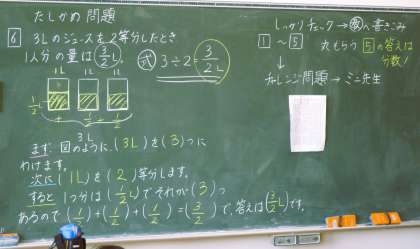 たしかめ問題
6 3Lのジュースを2等分したとき
1人分の量は(3/2)L
式 3÷2=3/2L
1L 1L 1L
1/2L + 1/2 + 1/2
3L
まず 図のように、(3L)を(3)つに
わけます。
次に(1L)を(2)等分します。
すると 1つ分は(1/2L)でそれが(3)つ
あるので(1/2)+(1/2)+(1/2)=(3/2)で、答えは(3/2L)です。
しっかりチェック→教へ書きこみ
1～5 丸もらう 5の答えは
分数!
↓
チャレンジ問題→ミニ先生